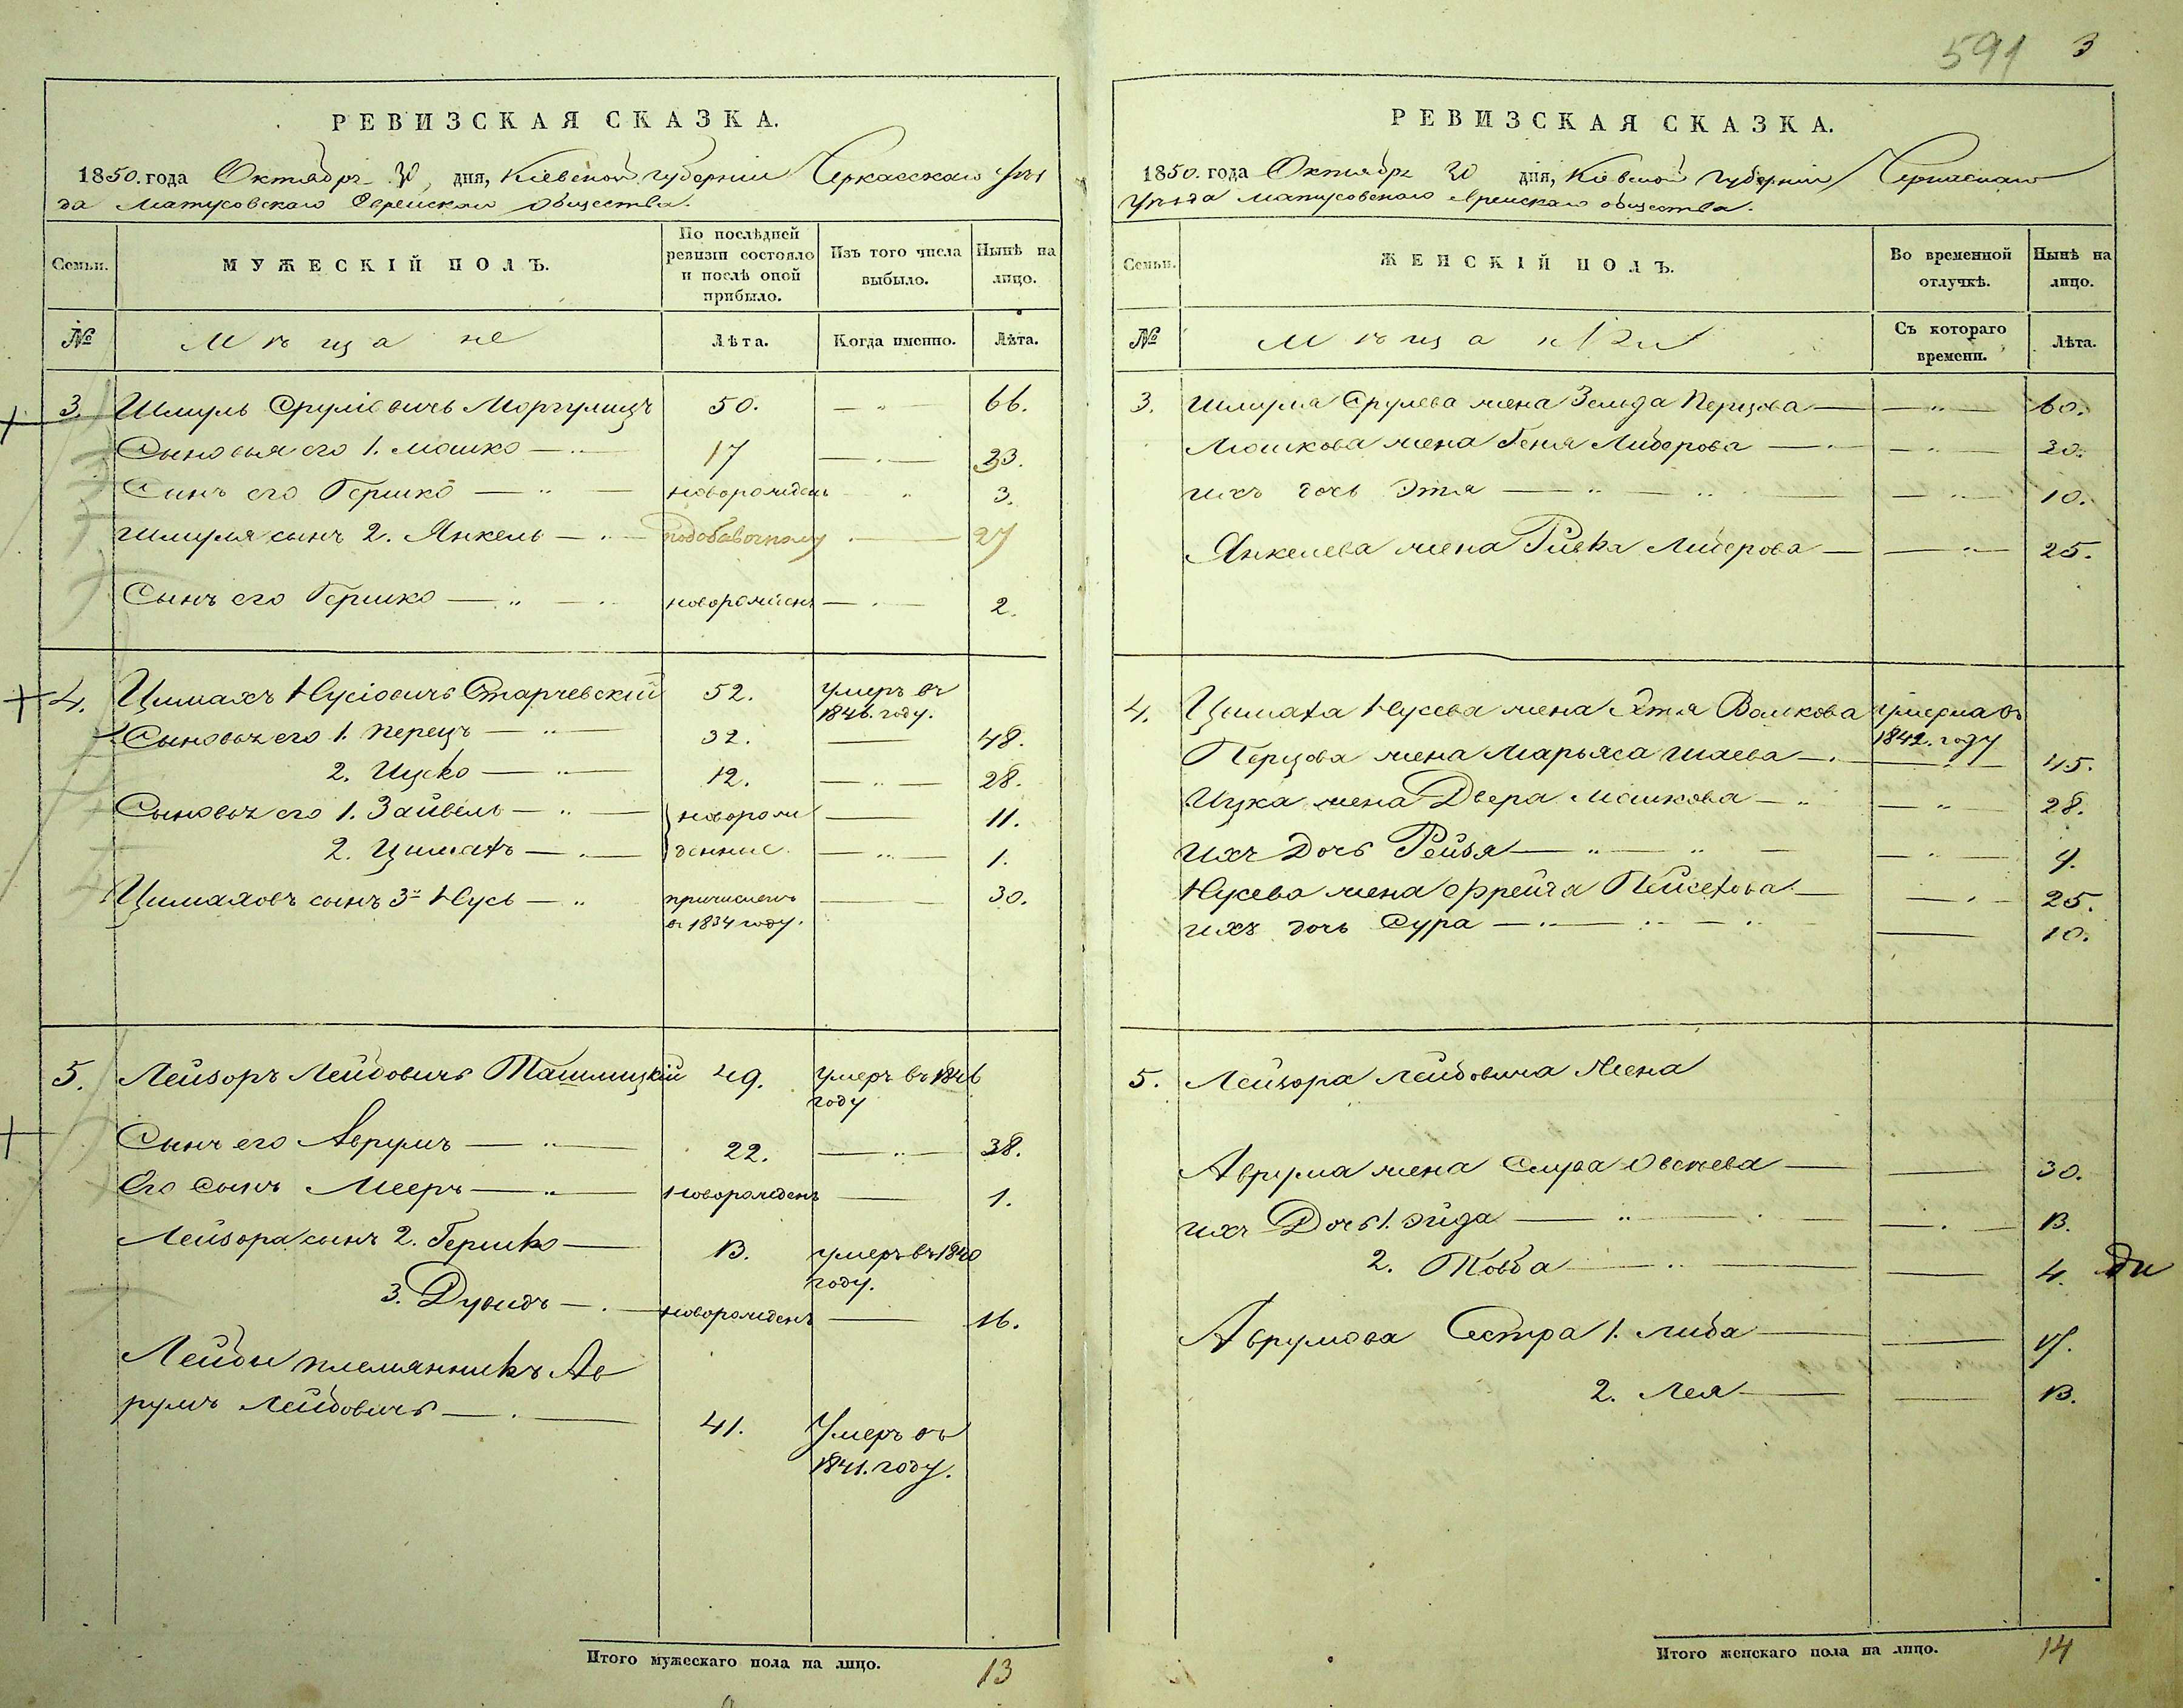 591 3
РЕВИЗСКАЯ СКАЗКА.
1850. года Октября 30, дня, Кіевской губерніи Черкасскаго уѣз
да Матусовскаго Еврейскаго общества.
Семьи. МУЖЕСКІЙ ПОЛЪ. По послѣдней ревизіи состояло и послѣ оной прибыло. Изъ того числа выбыло. Нынѣ на лицо.
№ Мѣщане Лѣта. Когда именно. Лѣта.
3. Шмуль Срулiовичъ Моргулицъ 50. — „ — 66.
Сыновья его 1. Мошко — „ — 17 — „ — 23.
Сынъ его Гершко — „ — новорожденъ „ 3.
Шмуля сынъ 2. Янкель — „ — подобавочному — 27
Сынъ его Гершко — „ — новорожденъ — „ — 2.
4. Цимахъ Нусіовичъ Старчевскій 52. умеръ въ
1846. году.
Сыновья его 1. Перецъ — „ — 32. — 48.
2. Ицко — „ — 12. — „ — 28.
Сыновья его 1. Зайвель — „ — новорож — 11.
2. Цимахъ — „ — денные. — „ — 1.
Цимаховъ сынъ 3й Нусь — „ причисленъ — 30.
въ 1834 году.
5. Лейзоръ Лейбовичъ Ташлицкій 49. умеръ въ 1846
году
Сынъ его Аврумъ — „ — 22. — „ — 38.
Его сынъ Мееръ — „ — новорожденъ — 1.
Лейзора сынъ 2. Гершко — 13. умеръ въ 1840
году.
3. Дувидъ — „ — новорожденъ — 16.
Лейбы племянникъ Ав
румъ Лейбовичъ — „ — 41. Умеръ въ
1841. году.
Итого мужескаго пола на лицо. 13
РЕВИЗСКАЯ СКАЗКА.
1850. года Октября 30 дня, Кіевской губерніи Черкаскаго
уѣзда Матусовскаго еврейскаго общества.
Семьи. ЖЕНСКІЙ ПОЛЪ. Во временной отлучкѣ. Нынѣ на лицо.
№ Мѣщанки Съ котораго времени. Лѣта.
3. Шмуля Срулева жена Зельда Перцова — — „ — 60.
Мошкова жена Геня Либерова — „ — „ — 20.
ихъ дочь Этя — „ — „ — — „ — 10.
Янкелева жена Ривка Либерова — — „ — 25.
4. Цимаха Нусева жена Этя Волкова умерла въ
1842. году
Перцова жена Марьяса Шаева — „ — „ — 45.
Ицка жена Двера Мошкова — „ — „ 28.
ихъ дочь Рейзя — „ — „ — — „ — 4.
Нусева жена Фрейга Пейсехова — — „ — 25.
ихъ дочь Сура — „ — „ — „ — 10.
5. Лейзора Лейбовича жена
Аврума жена Сура Овсеева — — 30.
ихъ Дочь 1. Эйда — „ — „ — — „ — 13.
2. Товба — „ — — 4. Ди
Аврумова Сестра 1. Либа — — 17.
2. Лея — — 13.
Итого женскаго пола на лицо. 14